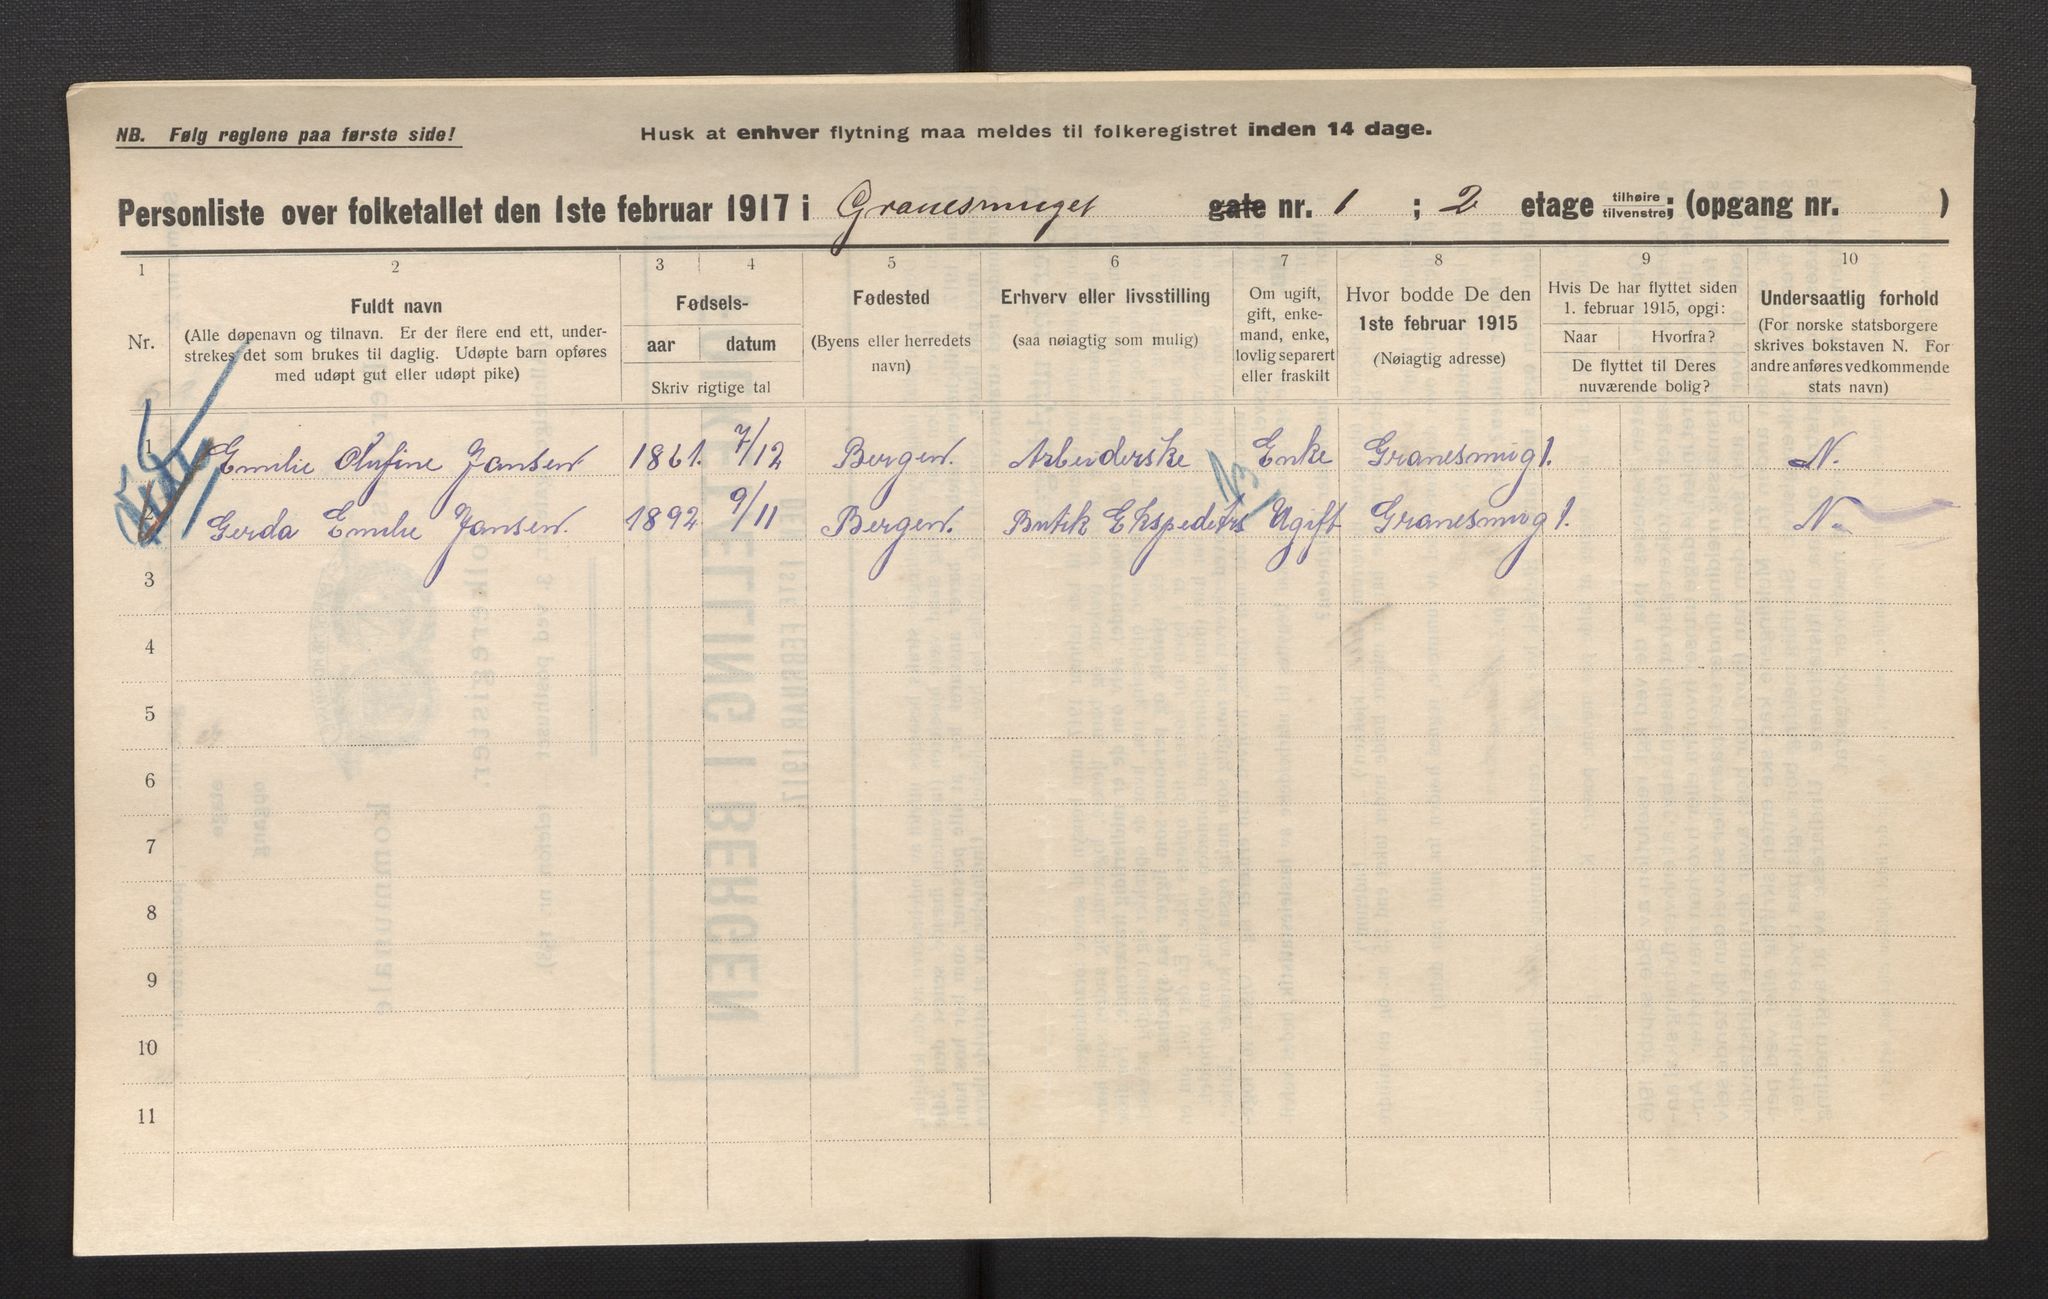 NB. Følg reglene paa første side! Husk at enhver flytning maa meldes til folkeregistret inden 14 dage.
Personliste over folketallet den 1ste februar 1917 i Granesmuget gate nr. 1 ; 2 etage tilhøire tilvenstre; (opgang nr. )
1 2 3 4 5 6 7 8 9 10
Nr.
Fuldt navn
(Alle døpenavn og tilnavn. Er der flere end ett, under-
strekes det som brukes til daglig. Udøpte barn opføres
med udøpt gut eller udøpt pike)
Fødsels-
aar datum
Skriv rigtige tal
Fødested
(Byens eller herredets
navn)
Erhverv eller livsstilling
(saa nøiagtig som mulig)
Om ugift,
gift, enke-
mand, enke,
lovlig separert
eller fraskilt
Hvor bodde De den
1ste februar 1915
(Nøiagtig adresse)
Hvis De har flyttet siden
1. februar 1915, opgi:
Naar Hvorfra?
De flyttet til Deres
nuværende bolig?
Undersaatlig forhold
(For norske statsborgere
skrives bokstaven N. For
andre anføres vedkommende
stats navn)
1 Emilie Olufine Jansen 1861. 7/12 Bergen. Arbeiderske Enke Granesmug 1. N.
2 Gerda Emilie Jansen. 1892 9/11 Bergen. Butik Ekspeditrs Ugift Granesmug 1. N.
3
4
5
6
7
8
9
10
11